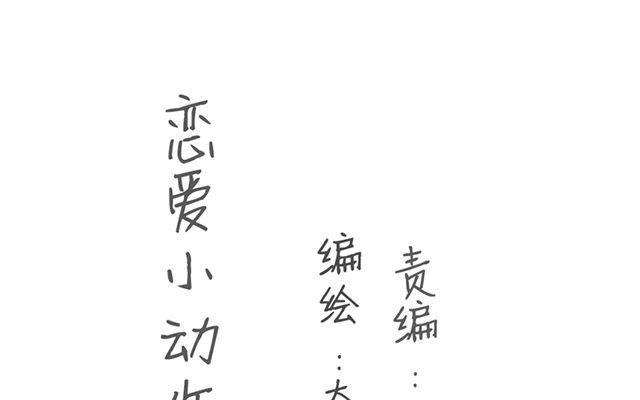 责编：
编绘：大
恋爱小动